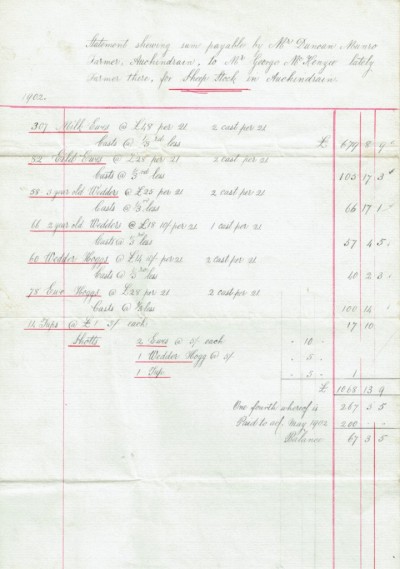 Statement showing sum payable by Mr Duncan Munro
Farmer, Auchendrain, to Mr George McKenzie lately
Farmer there, for Sheep Stock in Auchendrain.
1902.
307 Milk Ewes @ £48 per 21 2 cast per 21
Casts @ ⅓rd less £ 679 8 9
82 Eild Ewes @ £28 per 21 2 cast per 21
Casts @ ⅓rd less 105 17 3
58 3 year old Wedders @ £25 per 21 2 cast per 21
Casts @ less 66 17 1
66 2 year old Wedders @ £18 10/ per 21 1 cast per 21
Casts @ less 57 4 5
60 Wedder Hoggs @ 10/ per 21 2 cast per 21
Casts @ ⅓rd less 40 2 3
78 Ewe Hoggs @ £28 per 21 2 cast per 21
Casts @ less 100 14
Tups @ £1 each 17 10
Shotts 2 Ewes @ 5/ each - 10 -
1 Wedder Hogg @ 5/ - 5 -
1 Tup - 5 - 1
£ 1068 13 9
One fourth whereof is 267 3 5
Paid to a/c, May 1902 200
Balance 67 3 5